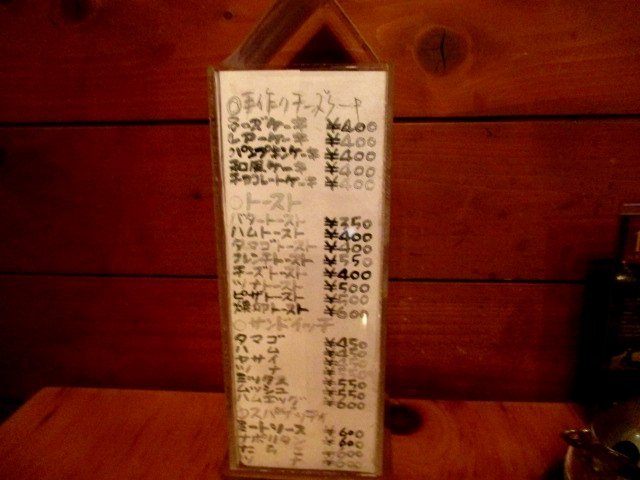 ○手作りチーズケーキ
チーズケーキ ¥400
レアーケーキ ¥400
パンプキンケーキ ¥400
和風ケーキ ¥400
チョコレートケーキ ¥400
○トースト
バタートースト ¥350
ハムトースト ¥400
タマゴトースト ¥400
フレンチトースト ¥550
チーズトースト ¥400
ツナトースト ¥500
ピザトースト ¥500
トースト ¥600
○サンドイッチ
タマゴ ¥450
ハム
ヤサイ
ツナ
ミックス ¥550
ハムエッグ ¥600
○スパゲッティ
ミートソース ¥600
ナポリタン ¥600